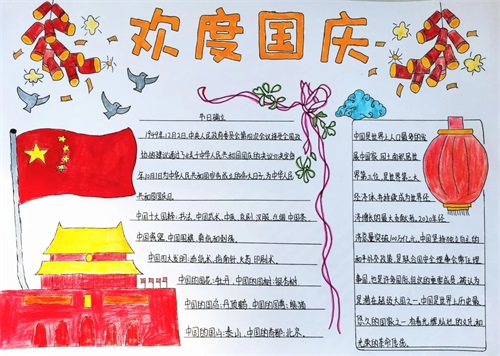 欢度国庆
节日确立
1949年12月2日,中央人民政府委员会第四次会议接受全国政
协的建议通过了《关于中华人民共和国国庆日的决议》决定每
年10月1日为中华人民共和国宣告成立的伟大日子,为中华人民
共和国国庆日。
中国十大国粹:书法、中国武术、中医、京剧、汉服、瓷器、中国茶
中国围棋、中国刺绣、剪纸和刺绣。
中国四大发明:造纸术、指南针、火药、印刷术
中国的国花:牡丹,中国的国树:银杏树
中国的国鸟:丹顶鹤,中国的国宝:熊猫
中国的国山:泰山,中国的首都:北京。
中国是世界上人口最多的发
展中国家,国土面积居世
界第三位,是世界第二大
经济体,并持续成为世界经
济增长的最大贡献者,2020年经
济总量突破100万亿元。中国坚持独立自主的
和平外交政策,是联合国安全理事会常任理
事国,也是许多国际组织的重要成员,被认为
是潜在超级大国之一。中国是世界上历史最
悠久的国家之一,有着光辉灿烂的文化和
光荣的革命传统。